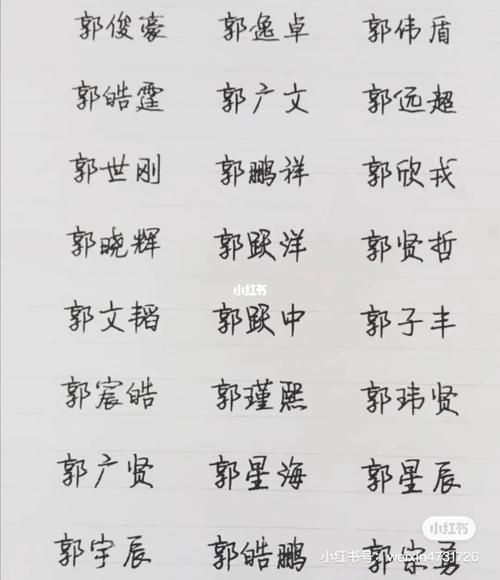 郭俊豪 郭逸卓 郭伟盾
郭皓霆 郭广文 郭远超
郭世刚 郭鹏祥 郭欣戎
郭晓辉 郭跃洋 郭贤哲
小红书
郭文韬 郭跃中 郭子丰
郭宸皓 郭瑾熙 郭玮贤
郭广贤 郭星海 郭星辰
小红书
郭宇辰 郭皓鹏 郭宗勇
小红书号：weixin4731726